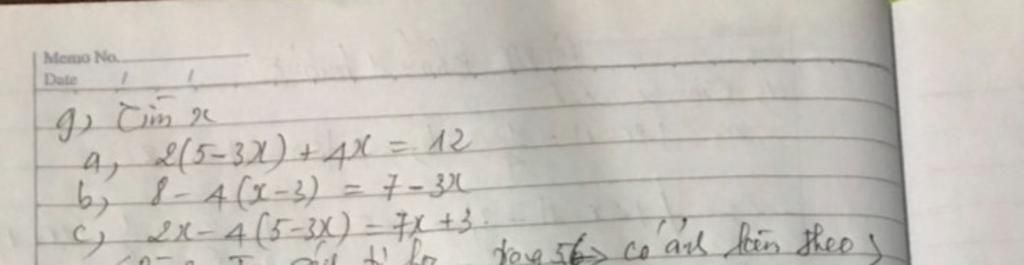 Memo No.
Date / /
g) Tìm x
a, 2(5-3x) + 4x = 12
b, 8 - 4(x-3) = 7 - 3x
c, 2x - 4(5-3x) = 7x + 3
có ảnh theo